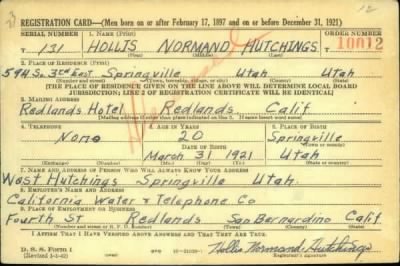 REGISTRATION CARD—(Men born on or after February 17, 1897 and on or before December 31, 1921)
SERIAL NUMBER 1. NAME (Print) ORDER NUMBER
T 131 HOLLIS NORMAND HUTCHINGS 10012
(First) (Middle) (Last)
2. PLACE OF RESIDENCE (Print)
594 So. 3rd East Springville Utah Utah
(Number and street) (Town, township, village, or city) (County) (State)
[THE PLACE OF RESIDENCE GIVEN ON THE LINE ABOVE WILL DETERMINE LOCAL BOARD
JURISDICTION; LINE 2 OF REGISTRATION CERTIFICATE WILL BE IDENTICAL]
3. MAILING ADDRESS
Redlands Hotel Redlands Calif.
[Mailing address if other than place indicated on line 2. If same insert word same]
4. TELEPHONE 5. AGE IN YEARS 6. PLACE OF BIRTH
None 20 Springville
DATE OF BIRTH (Town or county)
March 31 1921 Utah
(Exchange) (Number) (Mo.) (Day) (Yr.) (State or country)
7. NAME AND ADDRESS OF PERSON WHO WILL ALWAYS KNOW YOUR ADDRESS
West Hutchings Springville Utah.
8. EMPLOYER'S NAME AND ADDRESS
California Water & Telephone Co
9. PLACE OF EMPLOYMENT OR BUSINESS
Fourth St Redlands San Bernardino Calif.
(Number and street or R. F. D. number) (Town) (County) (State)
I AFFIRM THAT I HAVE VERIFIED ABOVE ANSWERS AND THAT THEY ARE TRUE.
D. S. S. Form 1
Hollis Normand Hutchings